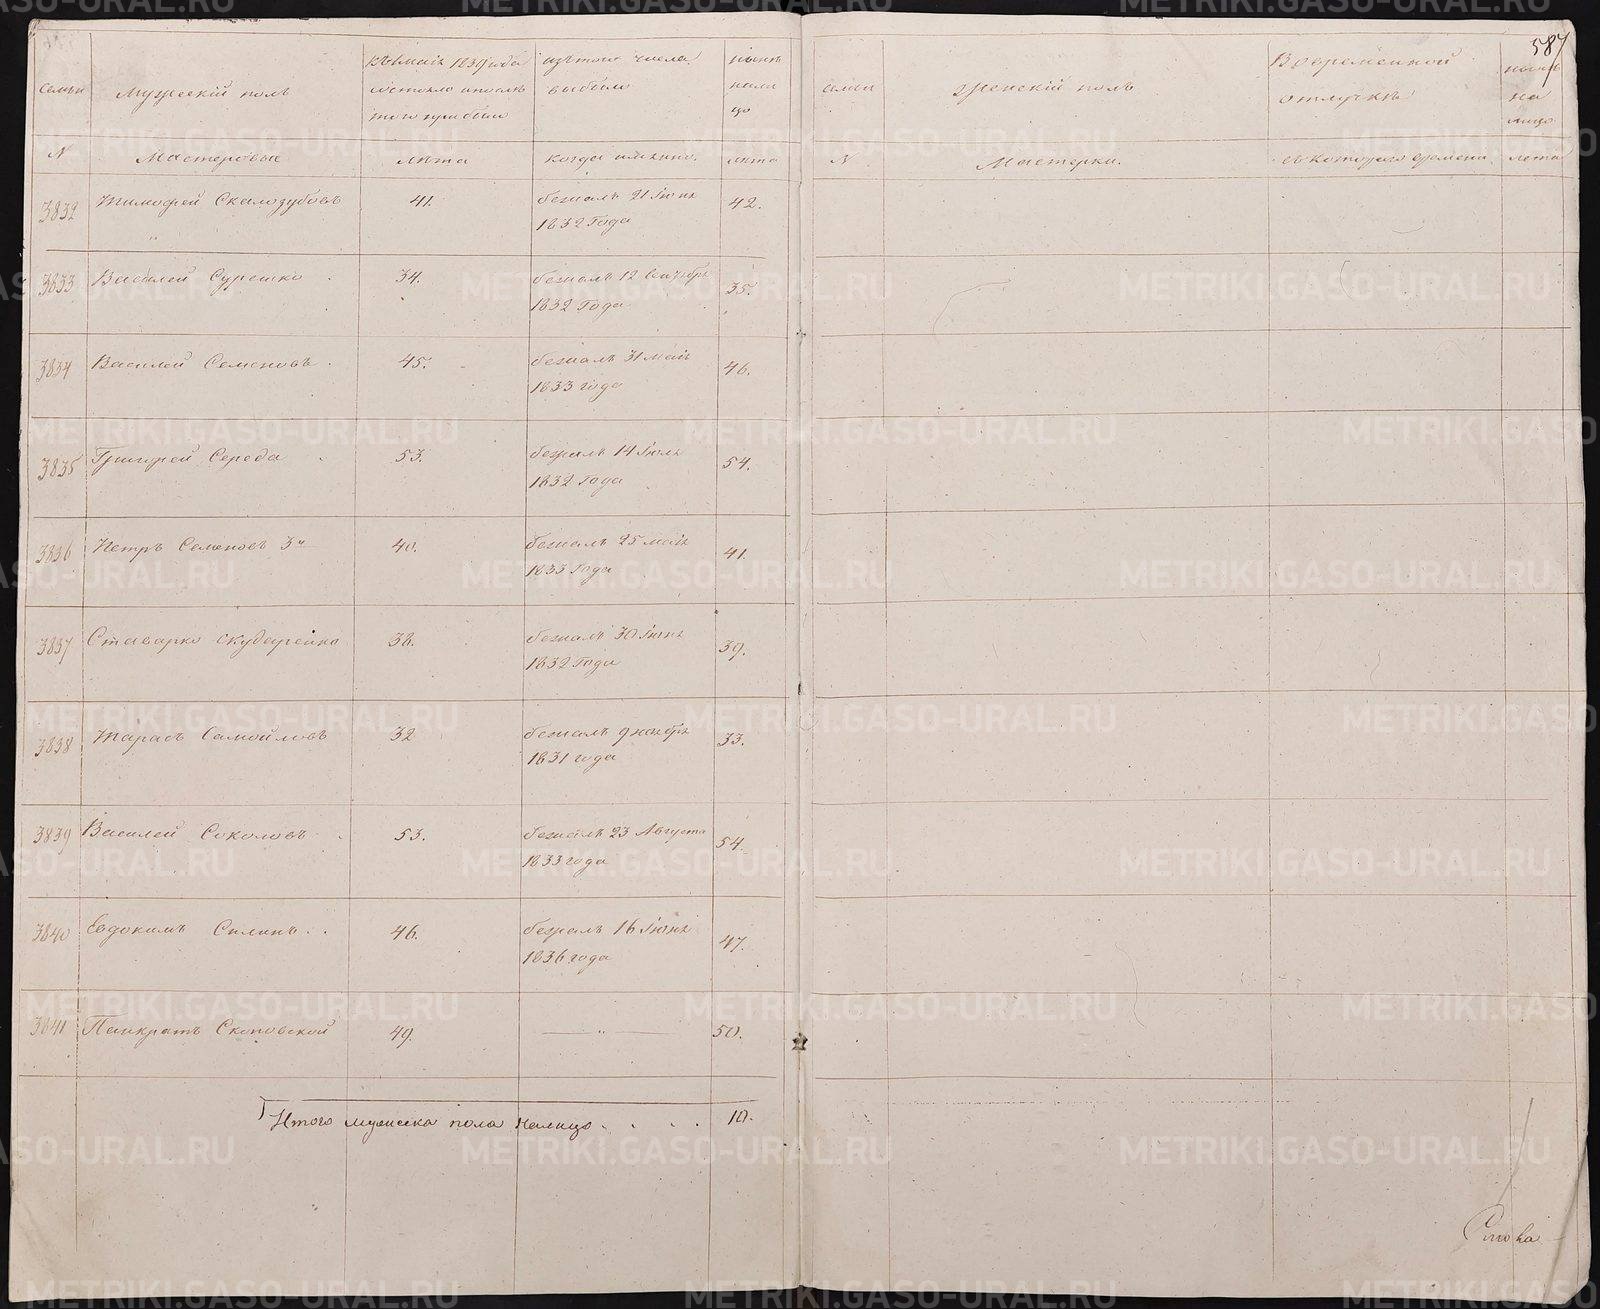 587
Семьи
Мужескій полъ
Къ маію 1839 года
состояло и послѣ
того прибыло
изъ того числа
выбыло
нынѣ
нали
цо
семьи
женскій полъ
Во временной
отлучкѣ
нынѣ
на
лицо
№ Мастеровые лѣта когда имянно. лѣта
№ Мастерки. съ котораго времени лета
3832 Тимофей Скалозубовъ 41. бежалъ 21 Іюня 42.
1832 Года
3833 Василей Сурешко 34. бежалъ 12 Сентября 35.
1832 Года
3834 Василей Семеновъ 45. бежалъ 31 маія 46.
1833 года
3835 Григорей Середа 53. бежалъ 14 Іюля 54.
1832 Года
3836 Петръ Семеновъ 3й 40. бежалъ 25 маія 41.
1833 Года
3837 Скударенко 38. бежалъ 30 Іюня 39.
1832 Года
3838 Тарасъ Самойловъ 32 бежалъ 9 33.
1831 года
3839 Василей Соколовъ 53. бежалъ 23 Августа 54.
1833 года
3840 Евдокимъ Силинъ 46. бежалъ 16 Іюня 47.
1836 года
3841 Панкратъ Скоповской 49. — " — 50.
Итого мужеска пола налицо . . . . 10.
METRIKI.GASO-URAL.RU